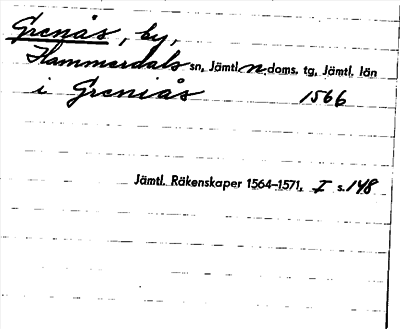 Grenås, by,
Hammerdals sn, Jämtl. n. doms. tg, Jämtl. län
i Greniås 1566
Jämtl. Räkenskaper 1564–1571, I s. 148